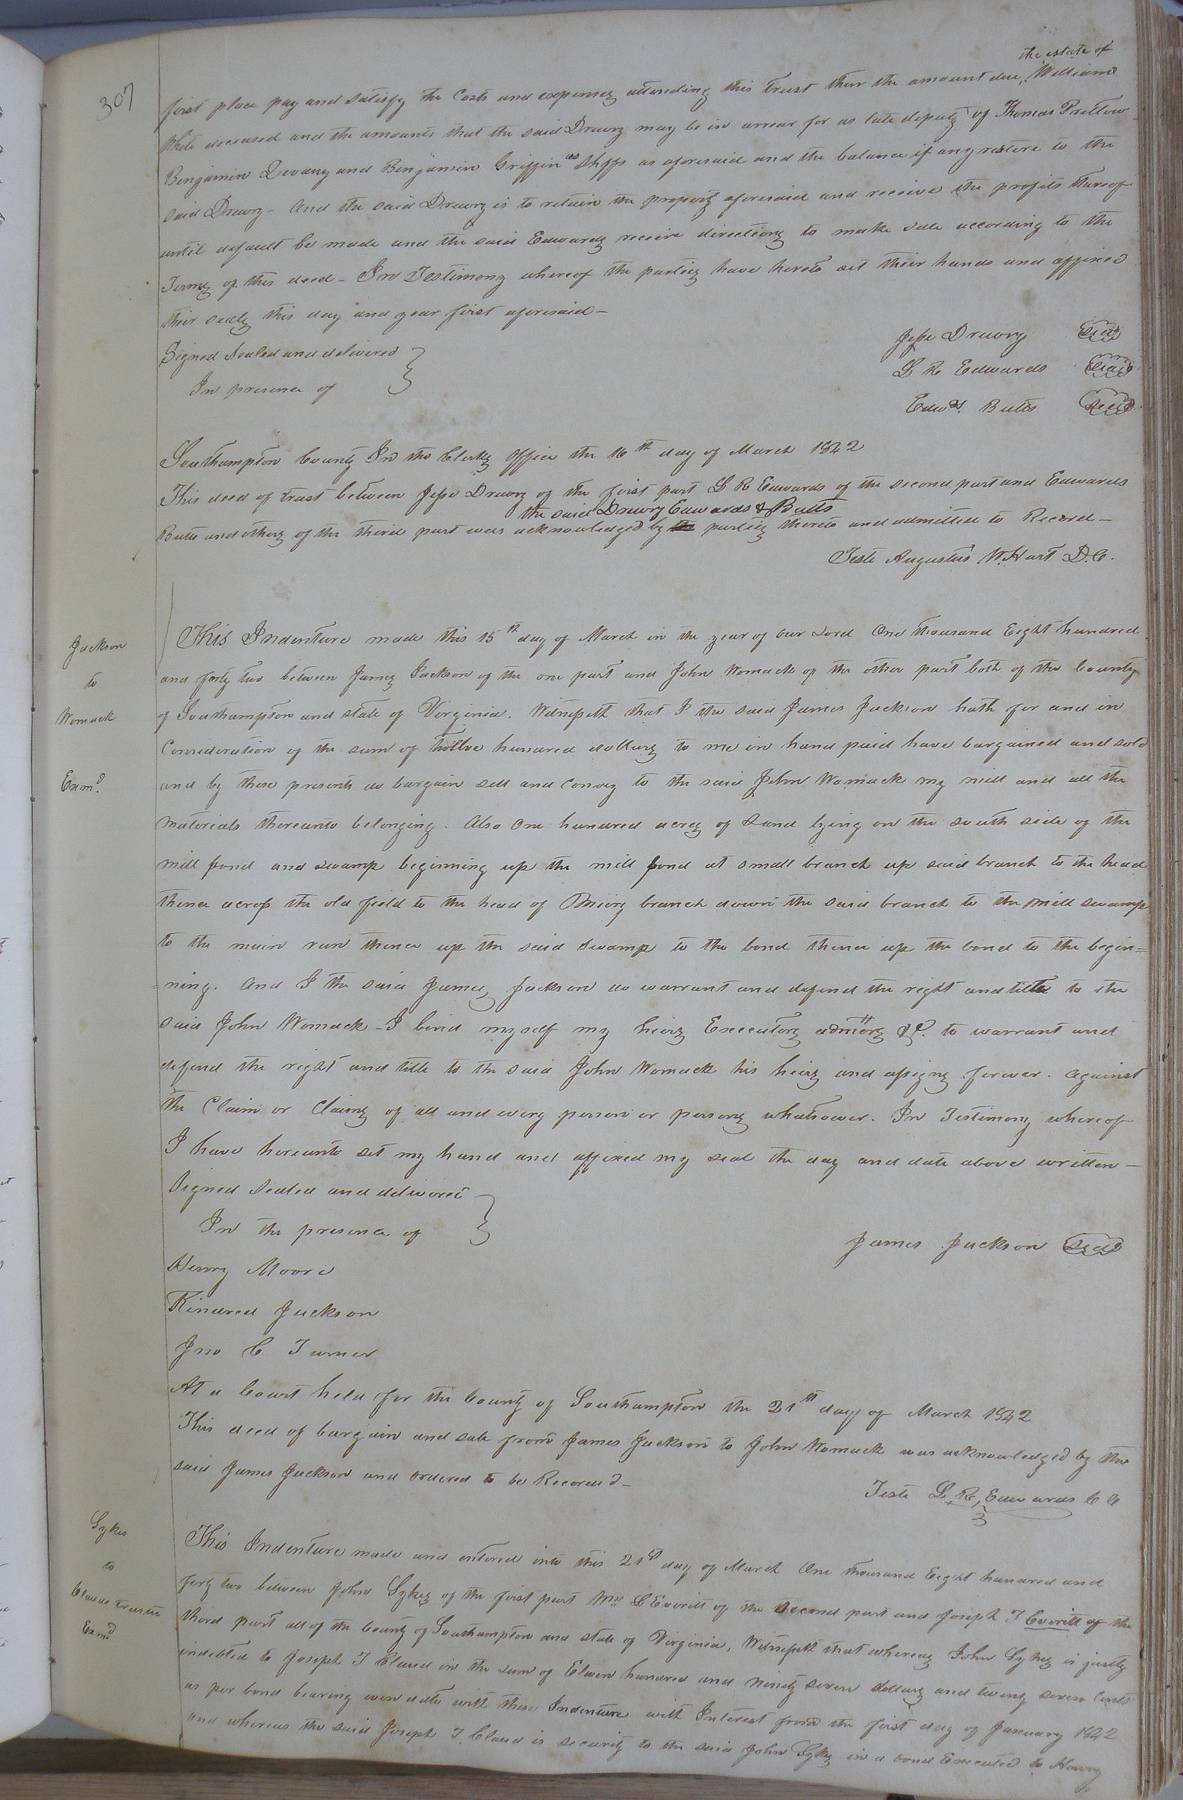 307
the estate of
first place pay and satisfy the Costs and expenses attending this trust then the amount due William
White deceased and the amounts that the said Drewry may be in arrear for as late deputy of Thomas Pretlow
Benjamin Devany and Benjamin Griffin as Shffs as aforesaid and the balance if any restore to the
said Drewry - And the said Drewry is to retain the property aforesaid and receive the profits thereof
until default be made and the said Edwards receive directions to make sale according to the
Terms of this deed - In Testimony whereof the parties have hereto set their hands and affixed
their seals this day and year first aforesaid -
Signed Sealed and delivered
In presence of
Jesse Drewry Seal
L. R Edwards Seal
Edwd. Butts Seal
Southampton County In the Clerks Office the 16th day of March 1842
This deed of trust between Jesse Drewry of the first part L R Edwards of the second part and Edwards
the said Drewry Edwards & Butts
Butts and others of the third part was acknowledged by the parties thereto and admitted to Record -
Teste Augustus W. Hart D.C.
Jackson
to
Womack
Examd.
This Indenture made this 15th day of March in the year of our Lord One thousand Eight hundred
and forty two between James Jackson of the one part and John Womack of the other part both of the County
of Southampton and state of Virginia. Witnesseth that I the said James Jackson hath for and in
Consideration of the sum of twelve hundred dollars to me in hand paid have bargained and sold
and by these presents do bargain sell and convey to the said John Womack my mill and all the
materials thereunto belonging. Also One hundred acres of Land lying on the south side of the
mill pond and swamp beginning up the mill pond at small branch up said branch to the head
thence across the old field to the head of branch down the said branch to the mill swamp
to the main run thence up the said swamp to the bond thence up the bond to the begin=
=ning. And I the said James Jackson do warrant and defend the right and title to the
said John Womack - I bind myself my heirs Executors admtors &c. to warrant and
defend the right and title to the said John Womack his heirs and assigns forever. Against
the Claim or Claims of all and every person or persons whatsoever. In Testimony whereof
I have hereunto set my hand and affixed my seal the day and date above written -
Signed Sealed and delivered
In the presence of
James Jackson Seal
Henry Moore
Kindred Jackson
Jno C Turner
At a Court held for the County of Southampton the 21th day of March 1842
This deed of bargain and sale from James Jackson to John Womack was acknowledged by the
said James Jackson and ordered to be Recorded -
Teste L. R. Edwards C C
Sykes
to
Claud trustee
Examd
This Indenture made and entered into this 21st day of March One thousand Eight hundred and
forty two between John Sykes of the first part Wm C Everitt of the second part and Joseph T Everitt of the
third part all of the County of Southampton and state of Virginia, Witnesseth that whereas John Sykes is justly
indebted to Joseph T Claud in the sum of Eleven hundred and Ninety seven dollars and twenty seven Cents
as per bond bearing even date with these Indenture with Interest from the first day of January 1842
and whereas the said Joseph T. Claud is security to the said John Sykes in a bond Executed to Henry